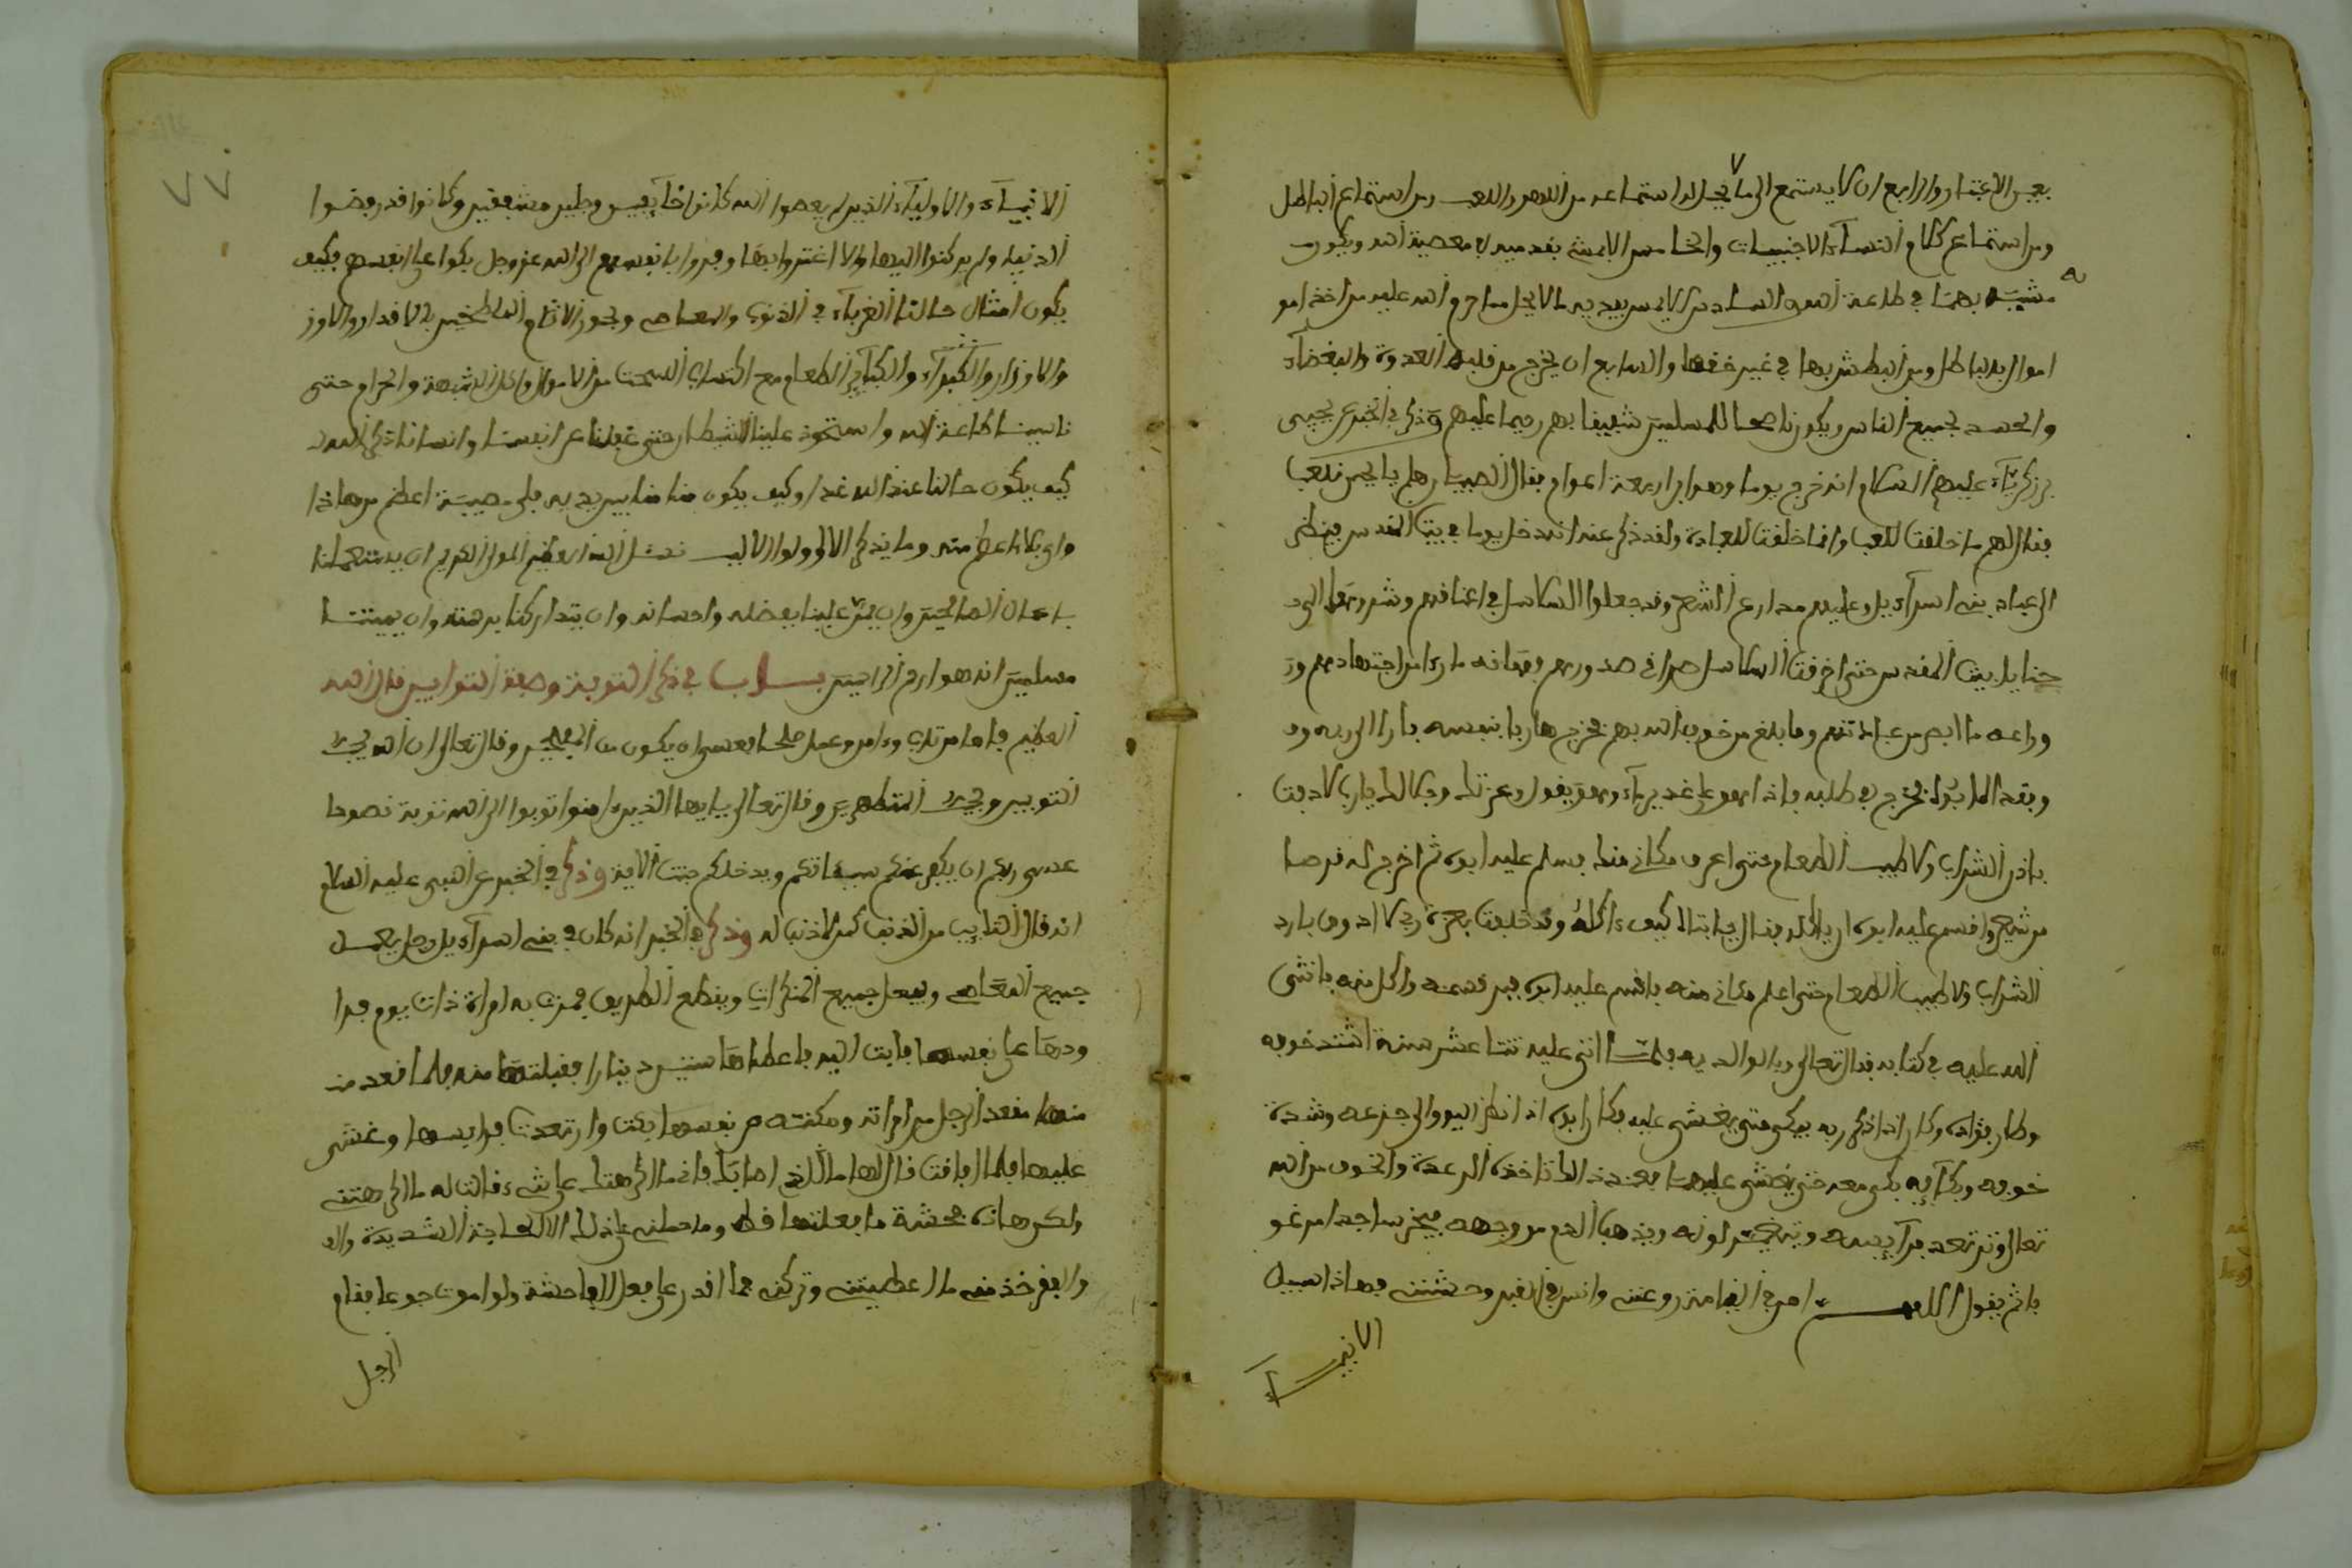 بعين الاعتبار والرابع ان لا يستمع الى ما يحل له استماعه من اللهو واللعب ومن استماع الباطل
ومن استماع كلام النساء الاجنبيات والخامس الا يمشي بقدميه في معصية الله ويكون
مشيه بهما في طاعة الله والسادس الا يمس بيديه ما لا يحل مسا
اموال بالباطل ومن البطش بها في غير حقها والسابع ان يخرج من قلبه العدوة والبغضاء
والحسد لجميع الناس ويكون ناصحا للمسلمين شفيقا بهم رحيما عليهم وذكر في الخبر عن يحيى
بن زكرياء عليهم السلام انه خرج يوما وهو ابن اربعة اعوام فقال الصبيان هلم يا يحيى نلعب
فقال لهم ما خلقت للعب وانما خلقت للعبادة ولقد ذكر عنه انه دخل يوما في بيت المقدس فنظر
الى عباد بني اسراءيل وعليهم مدارع الشعر وقد جعلوا السلاسل في اعناقهم وشدوها الى
حنايا بيت المقدس حتى اخرقت السلاسل صدورهم
وراعه ما ابصر من عبادتهم وما بلغ من خوف الله بهم فخرج هاربا بنفسه بارا الى ربه
وبقده ابوه فخرج في طلبه فاذا هو على غدير ماء وهو يقول وعزتك وجلالك يا رب لا ذقت
بارد الشراب ولا طيب الطعام حتى اعرف مكاني منك فسلم عليه ابوه ثم اخرج له قرصا
من شعير واقسم عليه ابوه ان ياكله فقال يا ابتاه كيف ءاكله وقد حلفت بعزة ربي لا اذوق بارد
الشراب ولا طيب الطعام حتى اعلم مكاني منه فاقسم عليه ابوه فبر قسمه واكل منه باثنى
الله عليه في كتابه فقال تعالى وبرا بوالديه فلما اتى عليه ثنتا عشر سنة اشتد خوفه
وطار فؤاده وكان اذا ذكر ربه بكى حتى يغشى عليه فكان ابوه اذا نظر اليه والى جزعه وشدة
خوفه وبكائه بكى معه حتى يغشى عليهما فعند ذلك تاخذه الرعدة والخوف من الله
تعالى وترتعد فرايصه ويتغير لونه ويذهب الدم من وجهه فيخر ساجدا
ثم يقول اللهم وانس في القبر وحشتي فهاذا سبيل
الانبياء
٧٧
الانبياء والاولياء الذين لم يعصوا الله كانوا خايفين وجلين مشفقين وكانوا قد رفضوا
الدنيا ولم يركنوا اليها ولا اغتروا بها وفروا بانفسهم الى الله عز وجل بكوا على انفسهم فكيف
يكون امثال حالنا الغرباء في الذنوب والمعاصي وبحور الاثام المتلطخين في الاقذار والاوز
والاوزار والكبراء والكباير الطعام مع اكتساب السحت من الاموال واكل الشبهة والحرام حتى
نسينا طاعة الله واستحوذ علينا الشيطان حتى غفلنا عن انفسنا وانسانا ذكر الله
كيف يكون حالنا عند الله غدا وكيف يكون مقامنا بين يديه فاي مصيبة اعظم من هاذا
واي بلاء اعظم منه وما يذكر الا اولوا الالباب نسئل الله العظيم المولى الكريم ان يستعملنا
باعمال الصالحين وان يمن علينا بفضله واحسانه وان يتداركنا برحمته وان يميتنا
مسلمين انه هو ارحم الراحمين باب في ذكر التوبة وصفة التوابين قال الله
العظيم فاما من تاب وءامن وعمل صالحا فعسى ان يكون من المفلحين وقال تعالى ان الله يحب
التوابين ويحب المتطهرين وقال تعالى يا ايها الذين ءامنوا توبوا الى الله توبة نصوحا
عسى ربكم ان يكفر عنكم سيئاتكم ويدخلكم جنت الاية وذكر في الخبر عن النبي عليه السلام
انه قال التايب من الذنب كمن لا ذنب له وذكر في الخبر انه كان في بني اسراءيل رجل يعمل
جميع المعاصي ويفعل جميع المنكرات ويقطع الطريق فمرت به امراة ذات يوم فرا
ودها على نفسها فابت اليه فاعطاها ستين دينارا فقبلتها منه فلما قعد من
منها مقعد الرجل من امراته ومكنته من نفسها بكت وارتعدت فرايصها وغشي
عليها فلما افاقت قال لها ما الذي اصابك فاني ما اكرهتك على شيء قالت له ما اكرهتني
ولكن هاذه فحشة ما فعلتها قط وما حملني على ذلك الا الحاجة الشديدة وال
والفقر فخذ مني ما اعطيتني وتركني فما اقدر على فعل الفاحشة ولو اموت جوعا فقام
الرجل